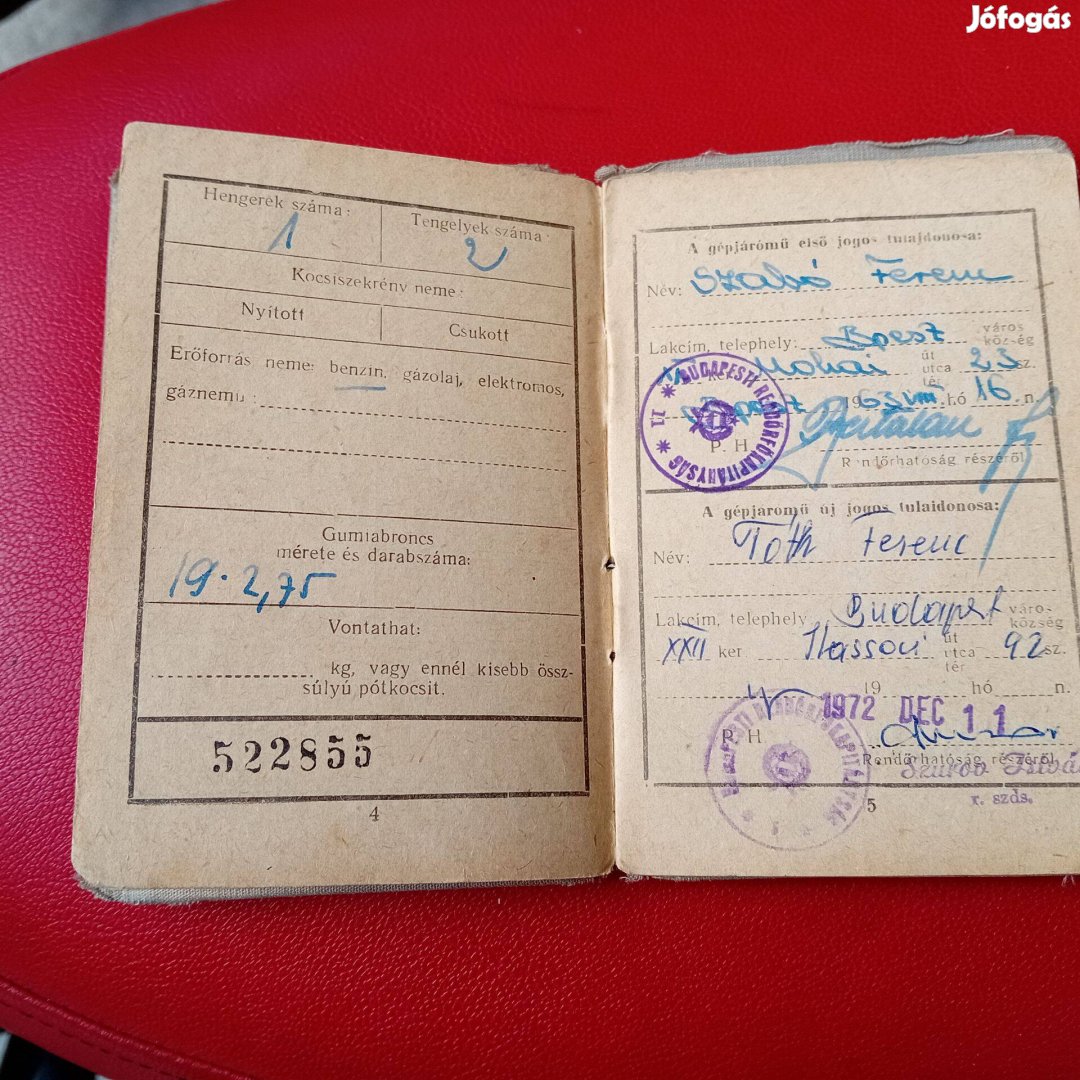 Jófogás
Hengerek száma:
1
Tengelyek száma
2
Kocsiszekrény neme:
Nyitott
Csukott
Erőforrás neme: benzin, gázolaj, elektromos,
gáznemű:
Gumiabroncs
mérete és darabszáma:
19. 2,75
Vontathat:
kg, vagy ennél kisebb össz-
súlyú pótkocsit.
522855
4
A gépjármű első jogos tulajdonosa:
Név: Szabó Ferenc
Lakcím, telephely: Bpest város
község
Mohai út
utca 23 sz.
tér
1963 VIII. hó 16. n.
BUDAPESTI RENDŐRFŐKAPITÁNYSÁG 11
P. H.
Rendőrhatóság részéről
A gépjármű új jogos tulajdonosa:
Név: Tóth Ferenc
Lakcím, telephely Budapest város
község
XXII ker út
utca 92 sz.
tér
19 hó n.
1972 DEC 11
BUDAPESTI RENDŐRFŐKAPITÁNYSÁG
P. H
Rendőrhatóság részéről
r. szds.
5